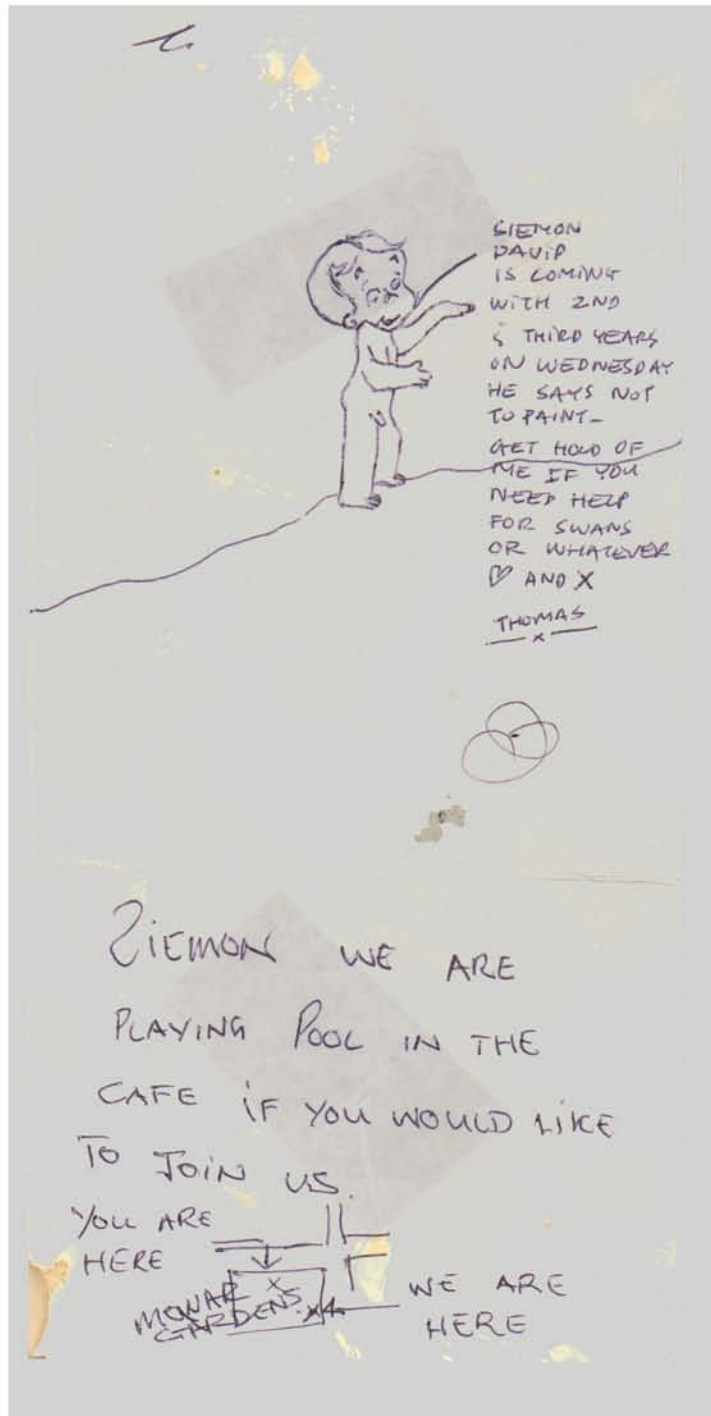 SIEMON
DAVID
IS COMING
WITH 2ND
& THIRD YEARS
ON WEDNESDAY
HE SAYS NOT
TO PAINT—
GET HOLD OF
ME IF YOU
NEED HELP
FOR SWANS
OR WHATEVER
♡ AND X
THOMAS
x
ZIEMON WE ARE
PLAYING POOL IN THE
CAFE IF YOU WOULD LIKE
TO JOIN US.
YOU ARE
HERE
GARDENS.
WE ARE
HERE